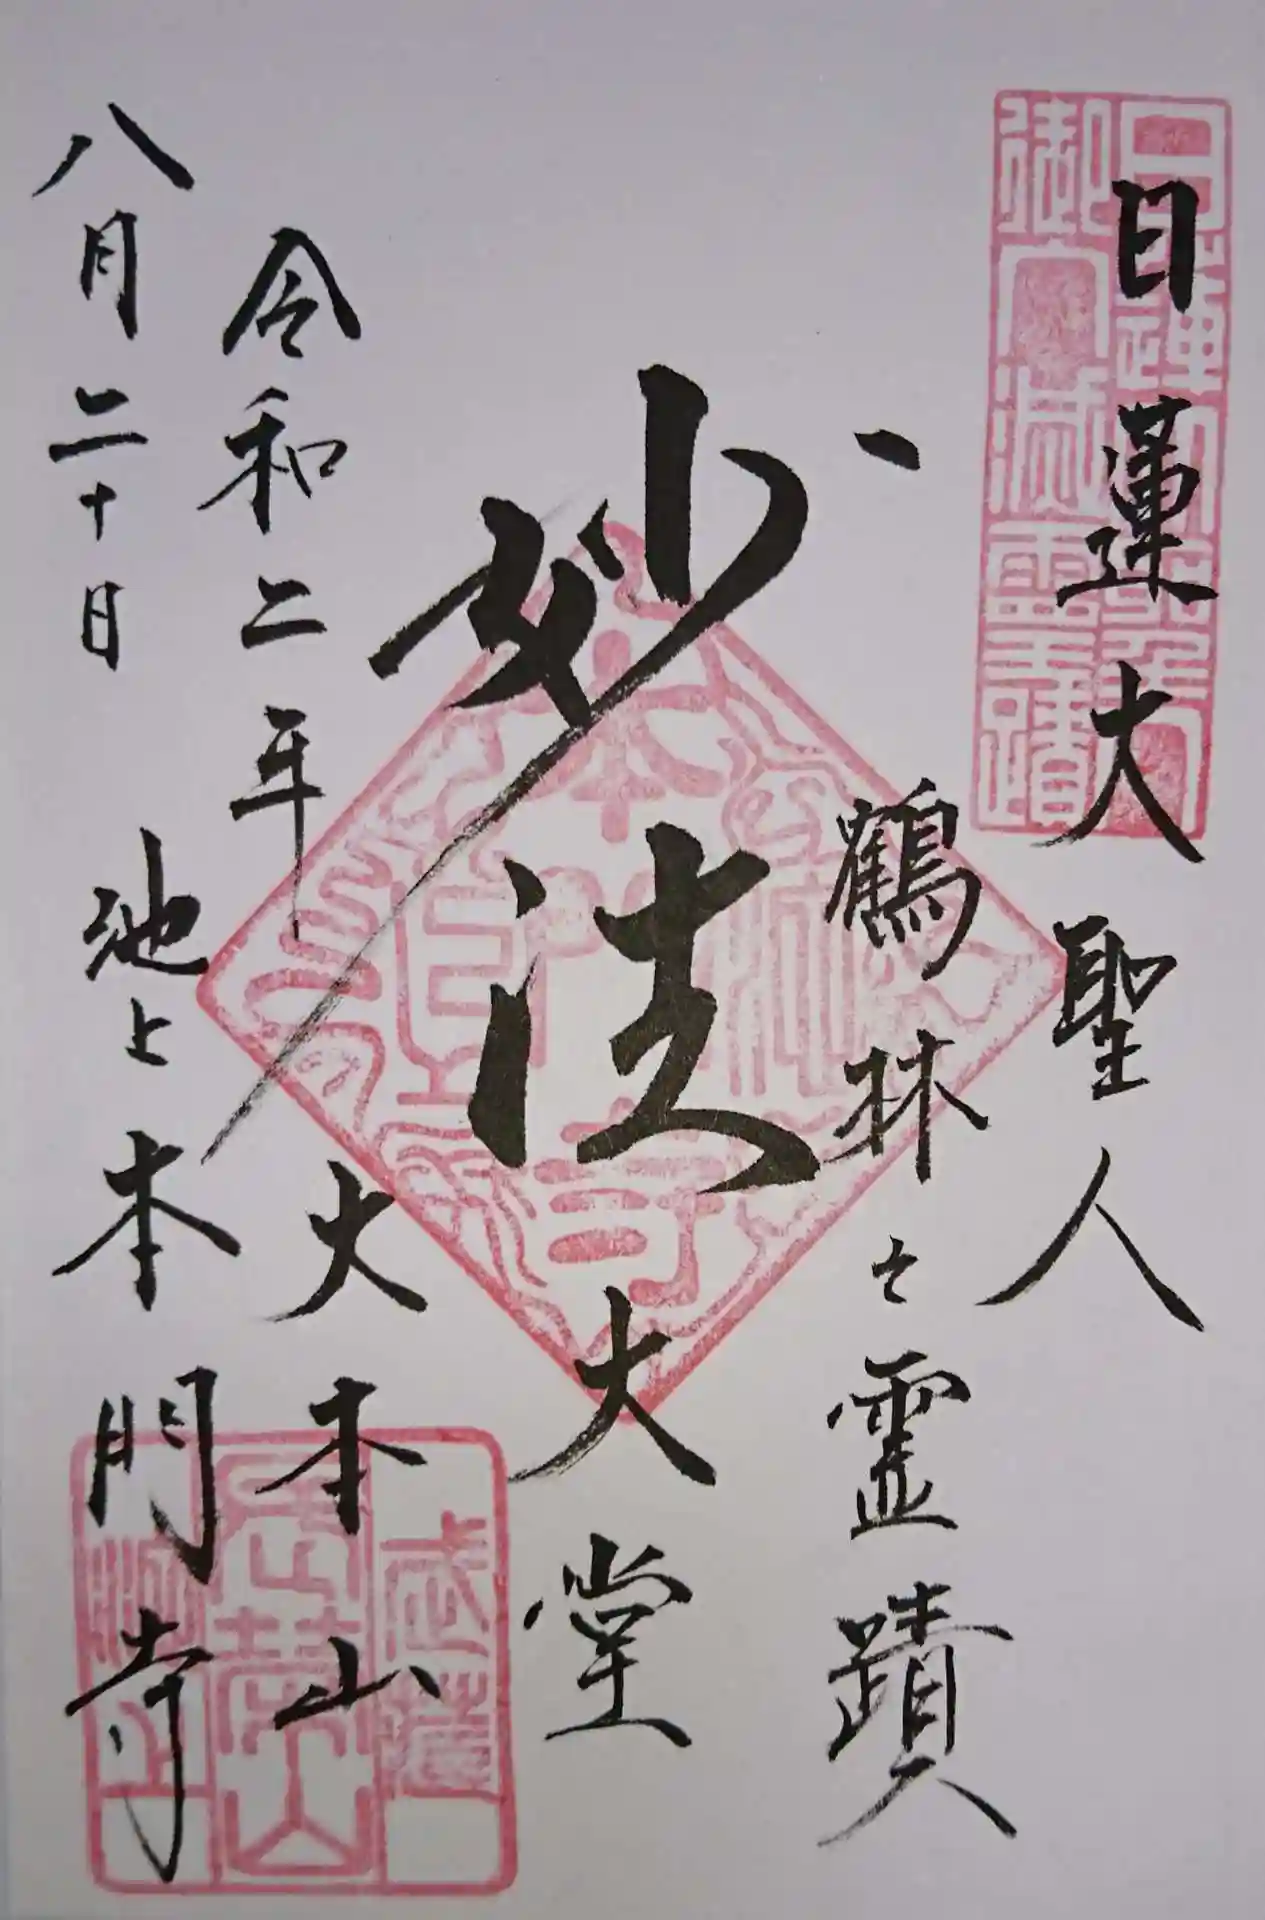 日蓮大聖人
鶴林之霊蹟
妙法
大堂
大本山
池上本門寺
令和二年
八月二十日
日蓮大聖人
御入滅霊蹟
武蔵
長栄山
池上